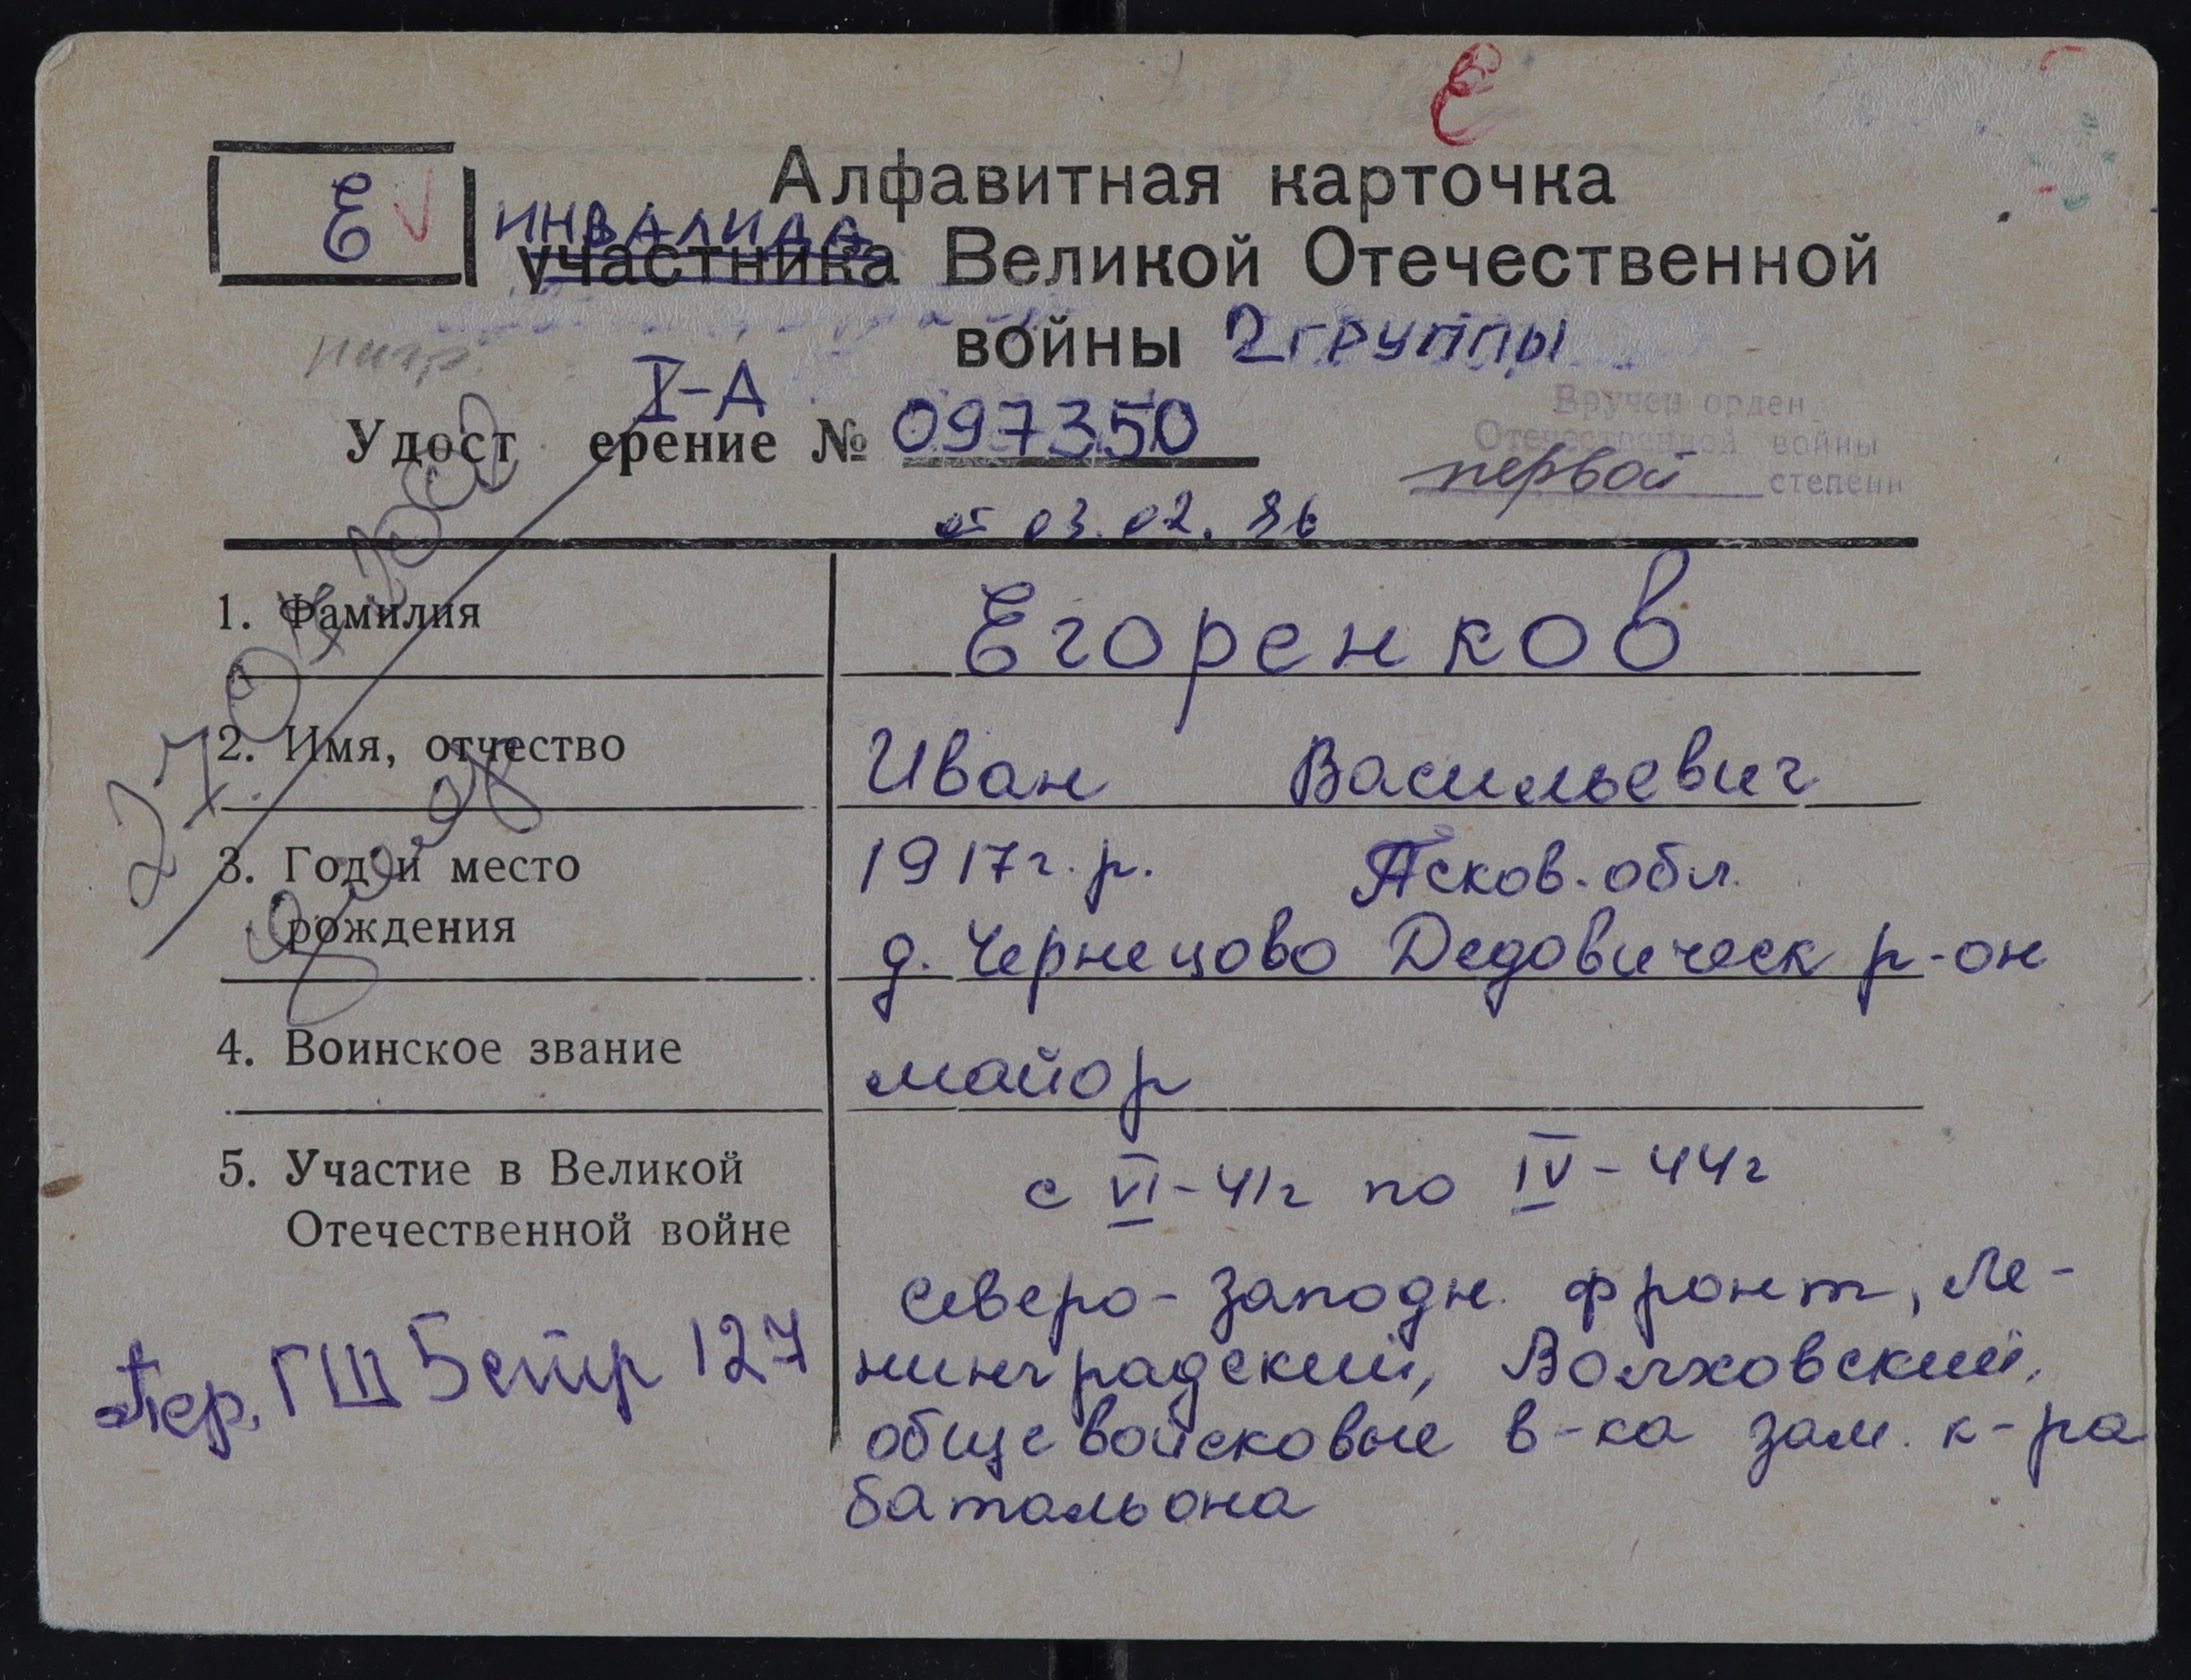 Е
Е
Алфавитная карточка
ИНВАЛИДА
участника Великой Отечественной
войны 2 группы
I-А
Удост ерение № 097350
Вручен орден
Отечественной войны
первой степени
от 03.02.86
1. Фамилия
Егоренков
2. Имя, отчество
Иван Васильевич
3. Год и место
рождения
1917г.р. Псков. обл.
д. Чернецово Дедовическ р-он
4. Воинское звание
майор
5. Участие в Великой
Отечественной войне
с VI-41г по IV-44г
Северо-западн. фронт, Ле-
нинградский, Волховский,
общевойсковые в-ка зам. к-ра
батальона
ГШ 5 стр 127